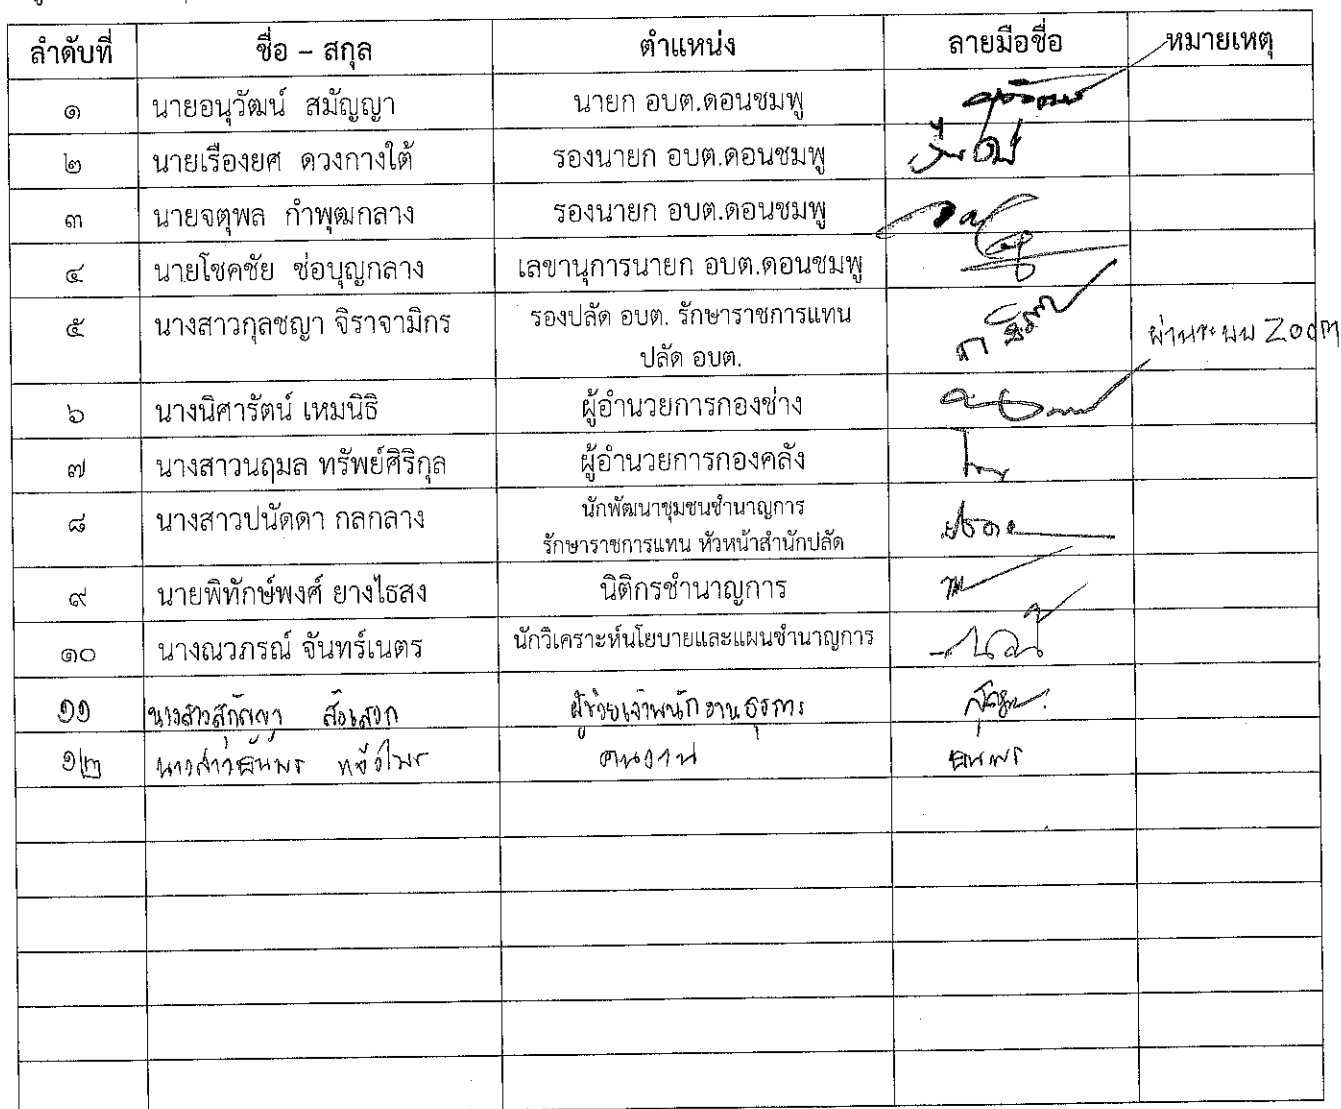 ลำดับที่ ชื่อ – สกุล ตำแหน่ง ลายมือชื่อ หมายเหตุ
๑ นายอนุวัฒน์ สมัญญา นายก อบต.ดอนชมพู
๒ นายเรืองยศ ดวงกางใต้ รองนายก อบต.ดอนชมพู
๓ นายจตุพล กำพุฒกลาง รองนายก อบต.ดอนชมพู
๔ นายโชคชัย ช่อบุญกลาง เลขานุการนายก อบต.ดอนชมพู
๕ นางสาวกุลชญา จิราจามิกร รองปลัด อบต. รักษาราชการแทน
ปลัด อบต. ผ่านระบบ Zoom
๖ นางนิศารัตน์ เหมนิธิ ผู้อำนวยการกองช่าง
๗ นางสาวนฤมล ทรัพย์ศิริกุล ผู้อำนวยการกองคลัง
๘ นางสาวปนัดดา กลกลาง นักพัฒนาชุมชนชำนาญการ
รักษาราชการแทน หัวหน้าสำนักปลัด
๙ นายพิทักษ์พงศ์ ยางไธสง นิติกรชำนาญการ
๑๐ นางณวภรณ์ จันทร์เนตร นักวิเคราะห์นโยบายและแผนชำนาญการ
๑๑ นางสาวสุกัญญา ผู้ช่วยเจ้าพนักงานธุรการ
๑๒ นางสาว คนงาน